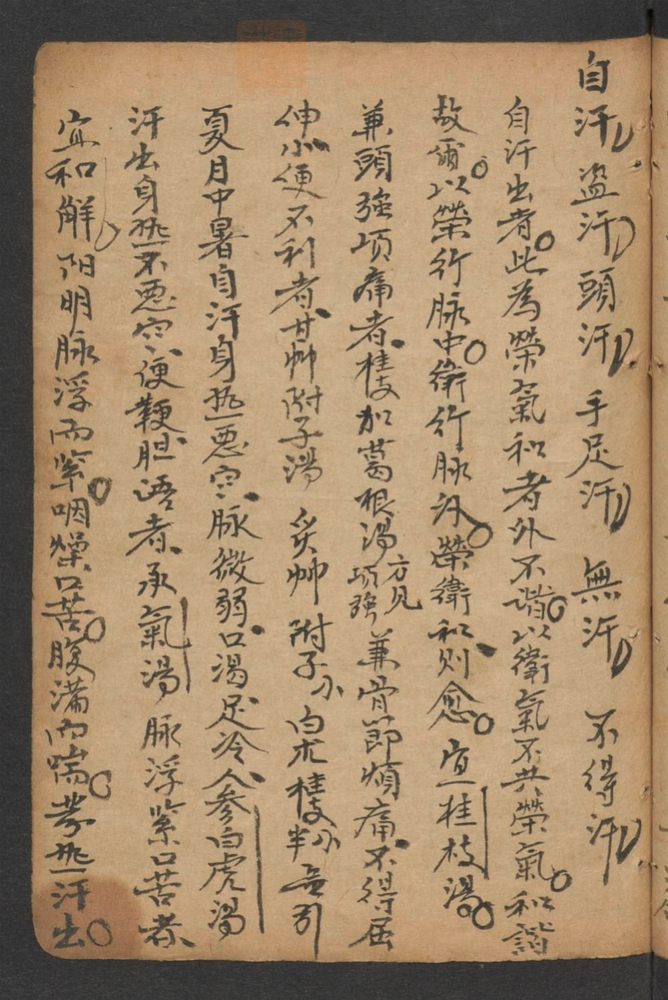 自汗 盗汗 頭汗 手足汗 無汗 不得汗
自汗出者此為榮氣和者外不諧以衛氣不共榮氣和諧
故爾以榮行脉中衛行脉外榮衛和則愈宜桂枝湯
兼頭強項痛者桂枝加葛根湯方見項強兼骨節煩痛不得屈
伸小便不利者甘艸附子湯 炙艸 附子 白朮 桂枝
夏月中暑自汗身热惡寒脉微弱口渴足冷人参白虎湯
汗出身热不惡寒便鞕譫語者承氣湯 脉浮緊口苦者
宜和解陽明脉浮而紧咽燥口苦腹满而喘發热汗出